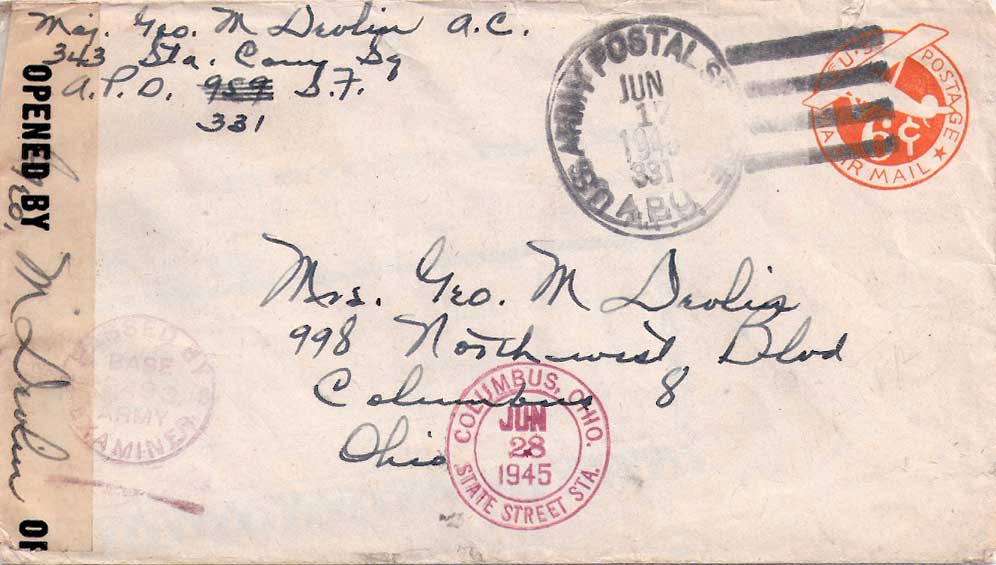 Maj. Geo. M Devlin A.C.
343 Sta. Comp Sq
A.P.O. 959 S.F.
331
U.S. ARMY POSTAL
JUN
17
1945
331
A.P.O.
U.S. POSTAGE
6¢
VIA AIR MAIL
OPENED BY
Geo, M Devlin
OF
Mrs. Geo. M Devlin
998 Northwest Blvd
Columbus 8
Ohio
PASSED BY
BASE
ARMY
EXAMINER
COLUMBUS, OHIO.
JUN
28
1945
STATE STREET STA.